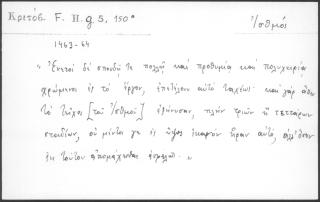 Κριτόβ. F. H. G 5, 150ᵃ
Ἰσθμός
1463-64
"Ἐνετοὶ δὲ σπουδῇ τε πολλῇ καὶ προθυμίᾳ καὶ πολυχειρίᾳ
χρώμενοι ἐς τὸ ἔργον, ἐπετέλουν αὐτὸ ταχέως· καὶ γὰρ
τὸ τεῖχος [τοῦ Ἰσθμοῦ] πλὴν τριῶν ἢ τεττάρων
σταδίων, οὐ μέντοι γε ἐς ὕψος ἱκανὸν ἦραν αὐτό, ἀλλ' ὅσον
ἐκ τούτου ἀπομάχεσθαι